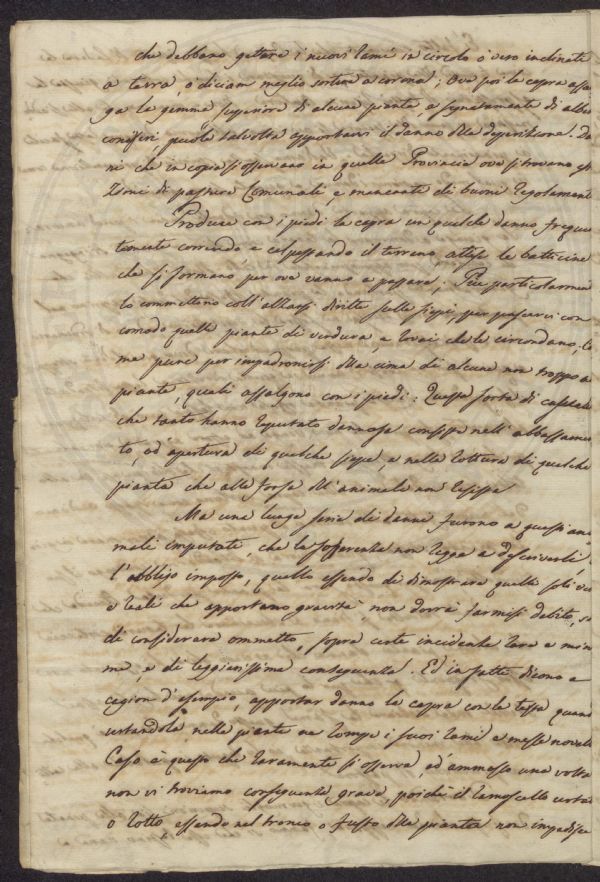 che debbano gettare i nuovi rami in circolo o vero inclinati
a terra, o diciam meglio sortire a corona; Ove poi la capra assa
ga le gemme superiori di alcune piante, e segnatamente di albe
coniferi, puole talvolta apportarvi il danno della deperizione. Da
ni che in copia si osservano in quelle Provincie ove si trovano
zioni di pasture Comunali, e mancanti di buoni regolament
Produce con i piedi la capra un qualche danno freque
temente correndo, e calpestando il terreno, attese le batticine
che si formano per ove vanno a passare; Più particolarmen
lo commettono coll'alzarsi diritte sulle siepi, per pascervi con
comodo quelle piante di verdura, e rovai che le circondano, Co
me pure per impadronirsi della cima di alcune non troppo a
piante, quali assalgono con i piedi: Questa sorta di
che tanto hanno reputato dannosa consiste nell'abbassamen
to, ed apertura di qualche siepe, e nella rottura di qualche
pianta che alla forza dell'animale non resista
Ma una lunga serie di danni furono a questi ani
mali imputati, che la sofferenza non regga a descriverli.
l'obbligo imposto, quello essendo di dimostrare quelli soli ve
e reali che apportano gravità, non dovrà farmisi debito, se
di considerare ommetto, sopra certe incidente rare e min
me, e di leggierissime conseguenze. Ed in fatti dicono a
cagion d'esempio, apportar danno la capra con la testa quand
urtandola nelle piante ne rompe i suoi rami e messe novelle
Caso è questo che raramente si osserva, ed ammesso una volta
non vi troviamo conseguenze grave, poichè il ramoscello urta
o rotto, essendo nel tronco o fusto della pianta non impedisce